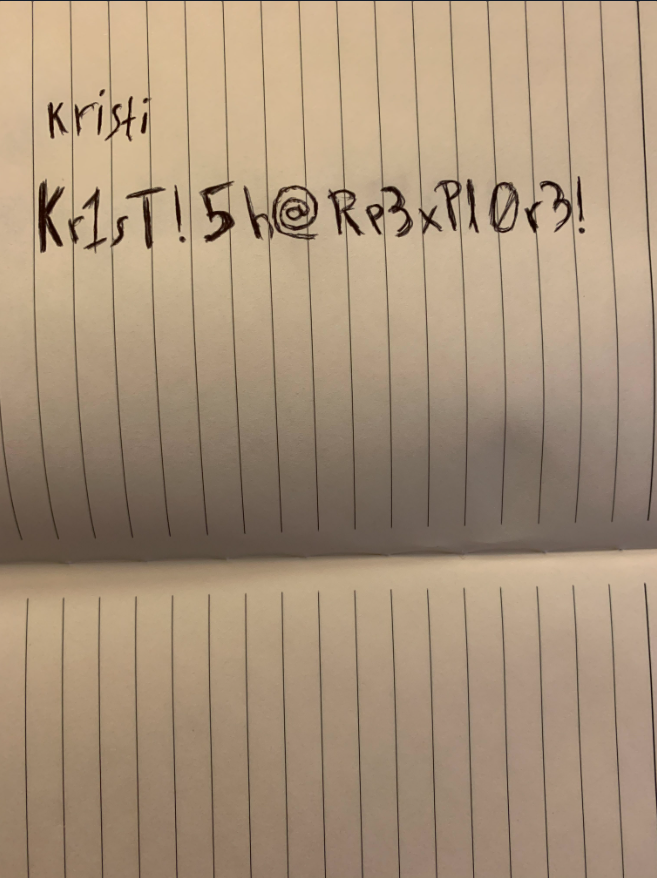 Kristi
Kr1sT!5h@Rp3xPl0r3!